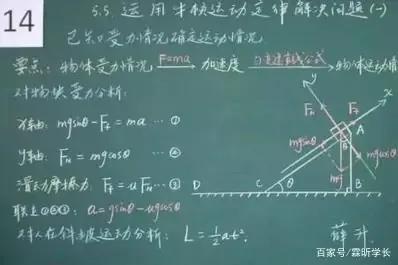 14
5.5. 运用牛顿运动定律解决问题(一)
已知受力情况确定运动情况
要点: 物体受力情况 F=ma 加速度 匀变速直线公式 物体运动情
对物块受力分析:
x轴: mgsinθ-Ff=ma …①
y轴: FN=mgcosθ …②
滑动摩擦力: Ff=uFN…③
联立①②③: a=gsinθ-ugcosθ
对人在斜坡运动分析: L=½at².
y
x
FN
Ff
A
B
mgsinθ
mgcosθ
mg
D
C
θ
B
薛升
百家号/霖昕学长